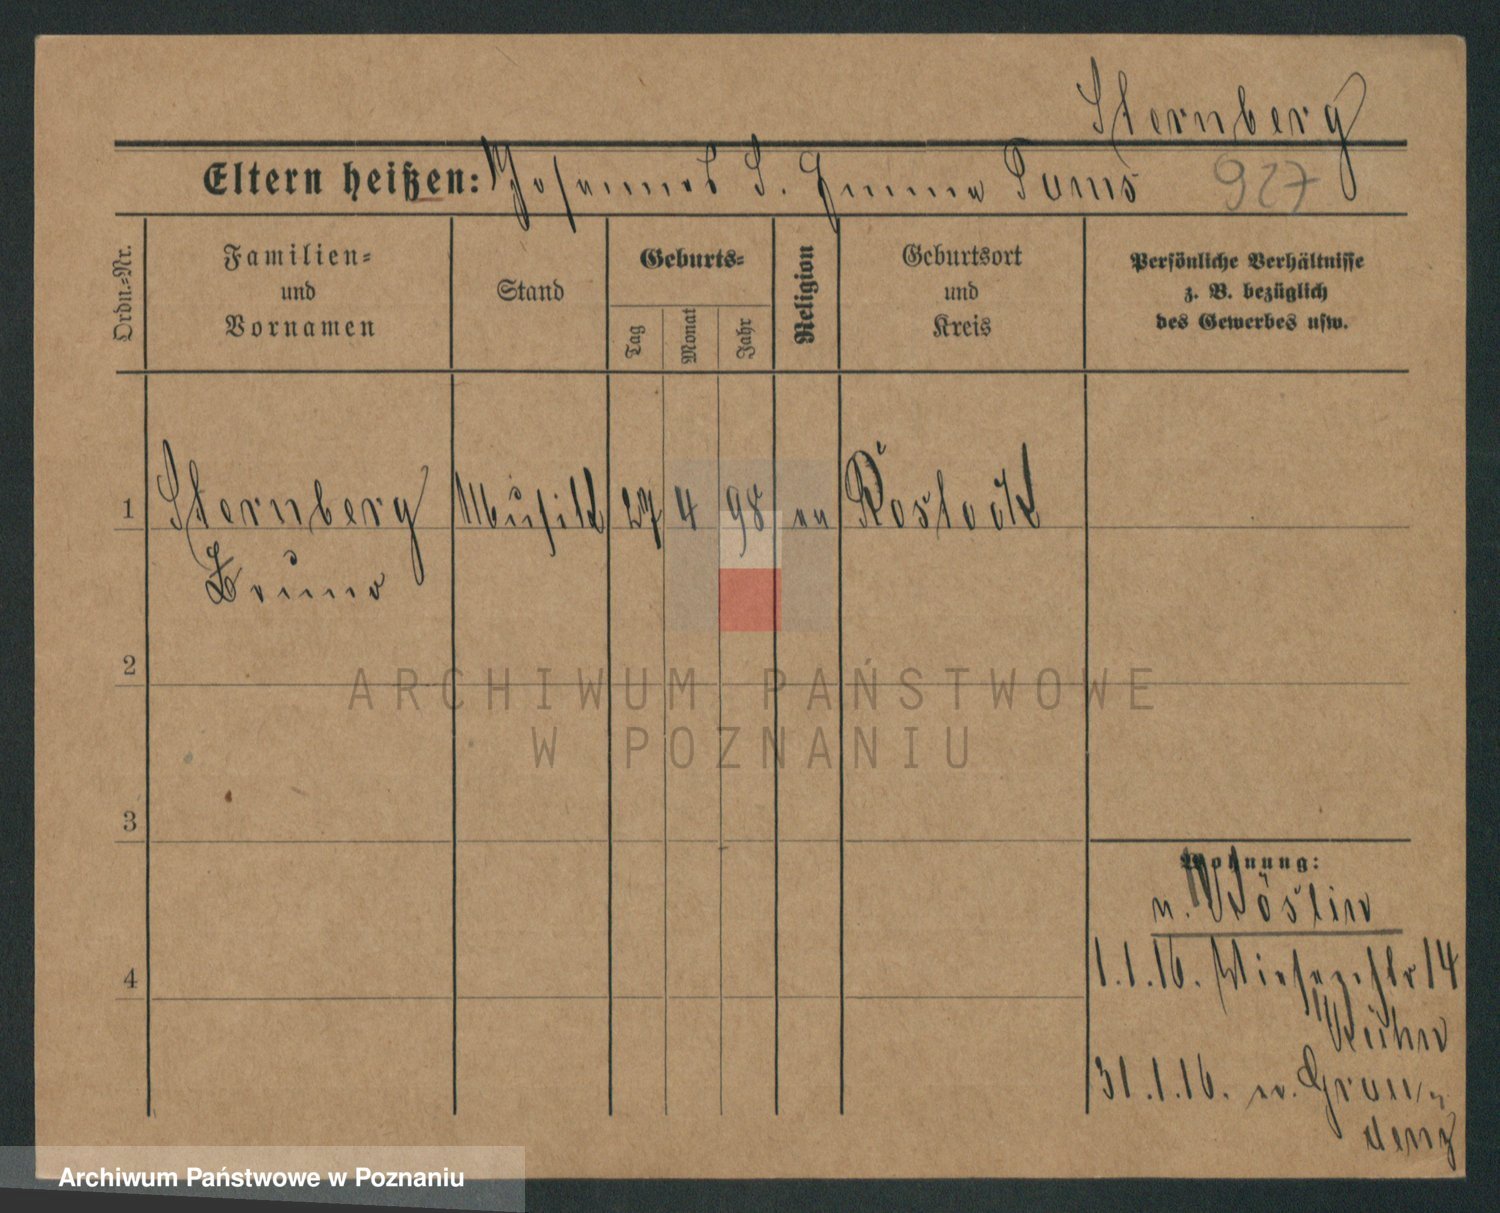 Sternberg
Eltern heißen: Johannes S. Emma Toms 927
Ordn.-Nr.
Familien-
und
Vornamen
Stand
Geburts-
Tag
Monat
Jahr
Religion
Geburtsort
und
Kreis
Persönliche Verhältnisse
z. B. bezüglich
des Gewerbes usw.
1 Sternberg Musik 27 4 98 ev Rostock
Bruno
2
ARCHIWUM PAŃSTWOWE
W POZNANIU
3
Wohnung:
v. Köslin
1.1.16. Wiesenstr 14
4
Kühn
31.1.16. n. Grau-
denz
Archiwum Państwowe w Poznaniu